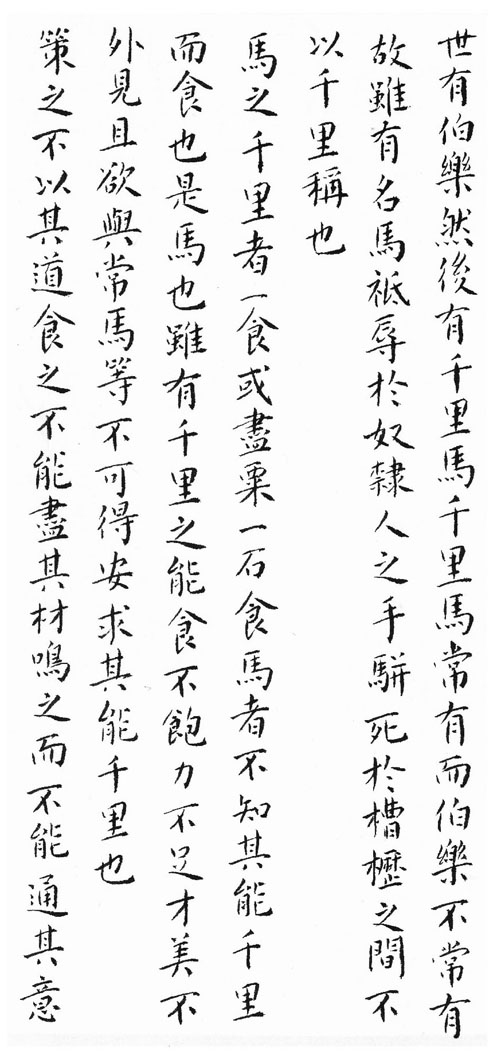 世有伯樂然後有千里馬千里馬常有而伯樂不常有
故雖有名馬祇辱於奴隸人之手駢死於槽櫪之間不
以千里稱也
馬之千里者一食或盡粟一石食馬者不知其能千里
而食也是馬也雖有千里之能食不飽力不足才美不
外見且欲與常馬等不可得安求其能千里也
策之不以其道食之不能盡其材鳴之而不能通其意